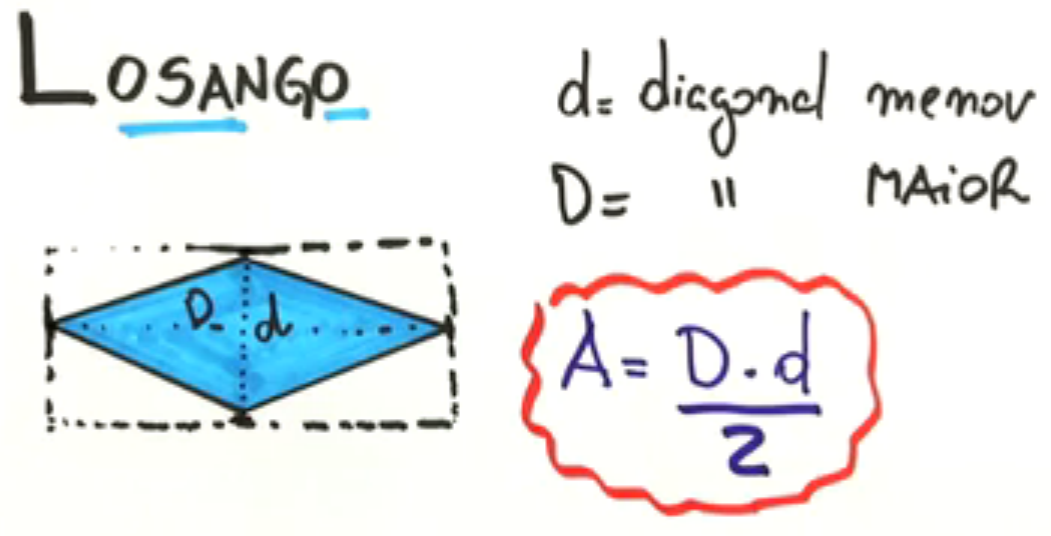 LOSANGO
d= diagonal menor
D= " MAiOR
D d
A= D.d
2